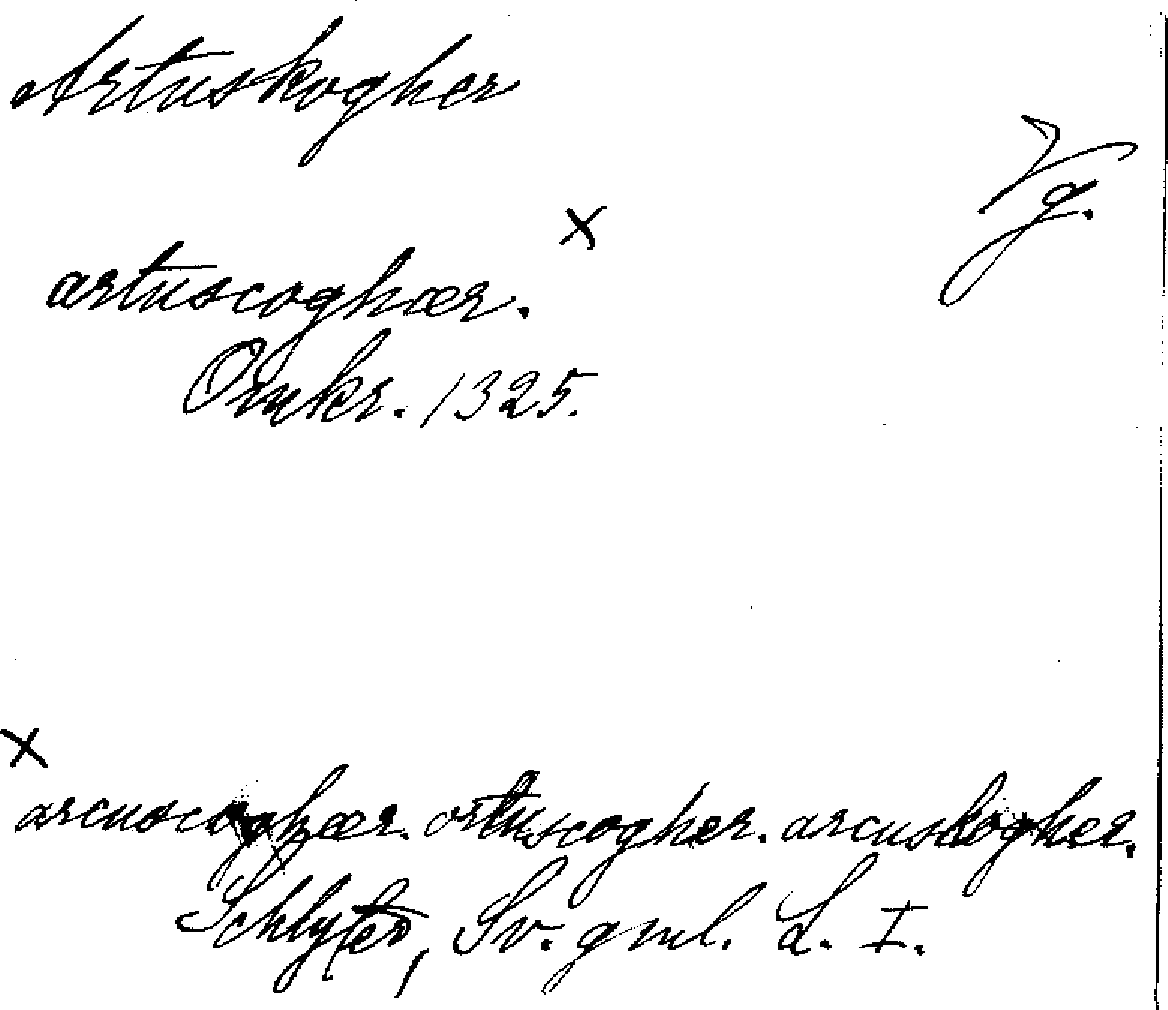 Artuskogher
Vg.
artuscoghær. x
Omkr. 1325.
x
arcuscoghær. ortuscogher. arcuskogher.
Schlyter, Sv. gml. L. I.